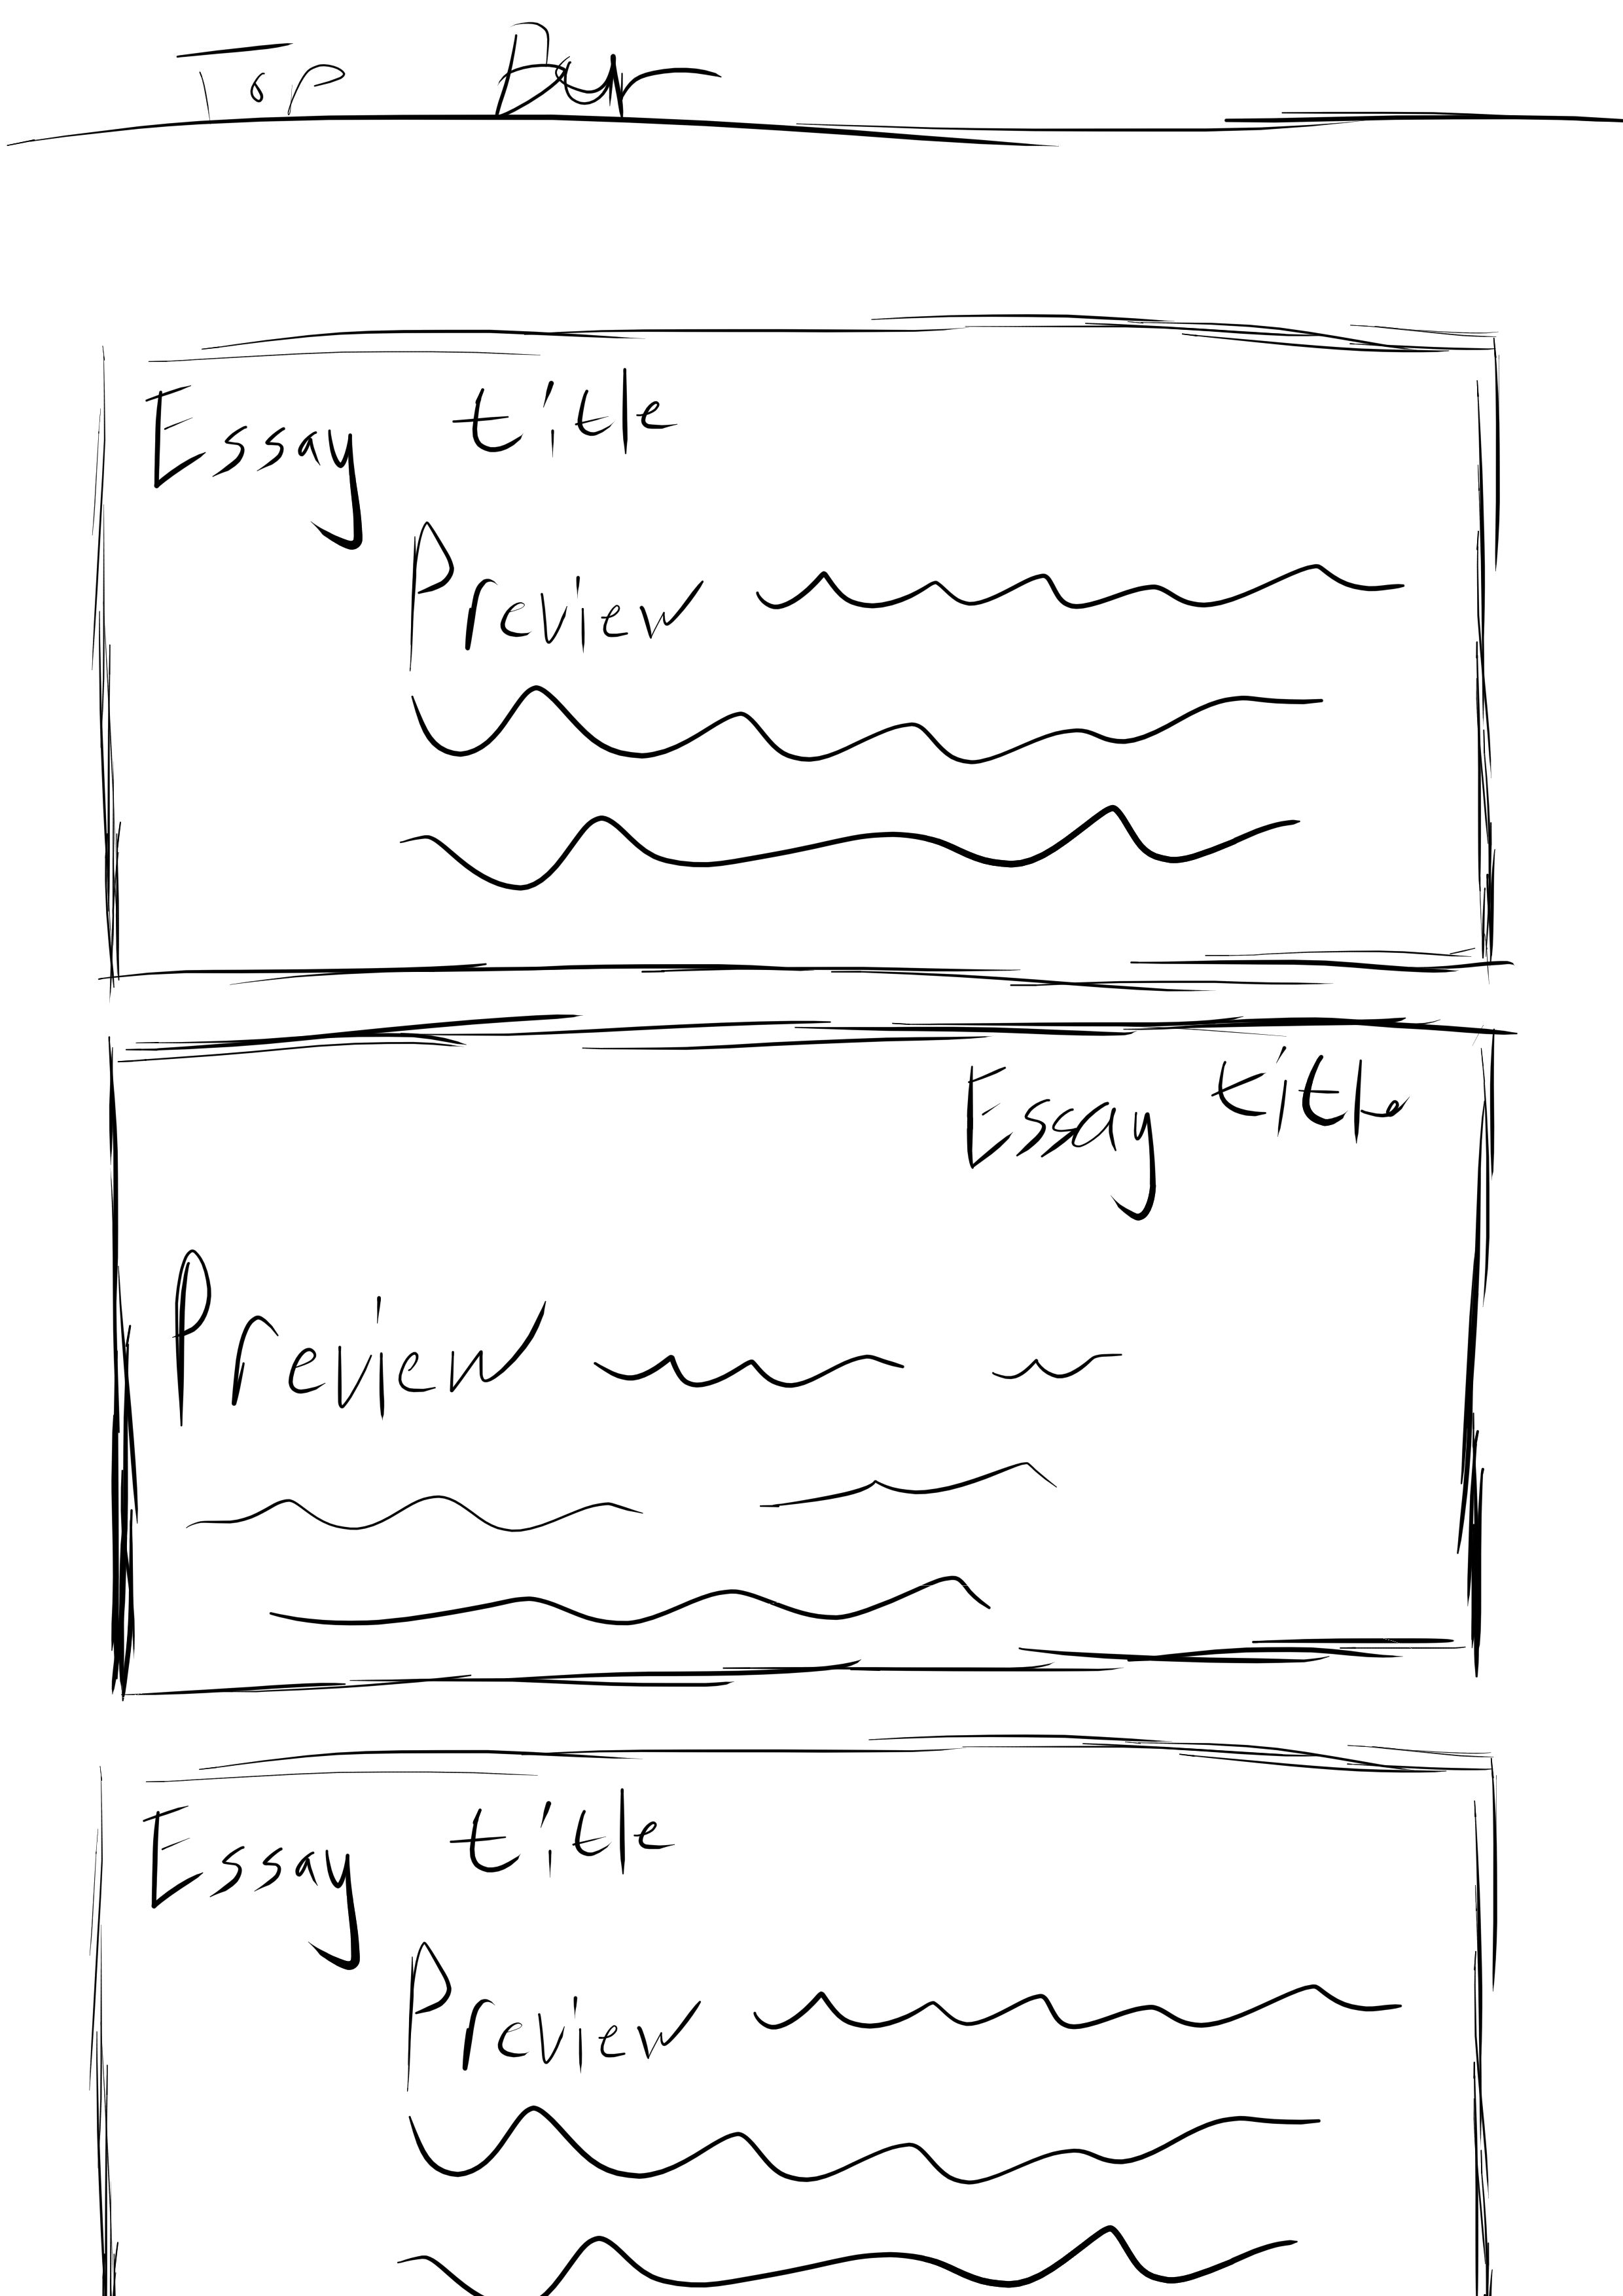 Top Bar
Essay title
Preview
Essay title
Preview
Essay title
Preview